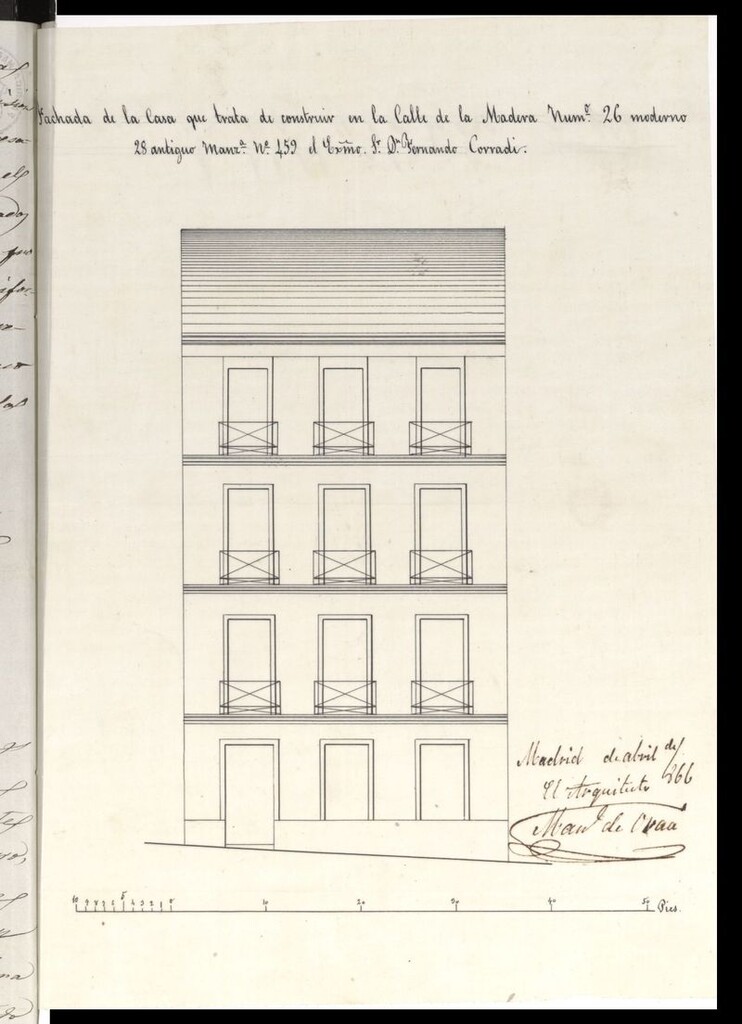 Fachada de la Casa que trata de construir en la Calle de la Madera Num.º 26 moderno
28 antiguo Manz.ª Nº 459 el Exmo. Sr. Dn. Fernando Corradi.
Madrid de abril de
866
El Arquitecto
Man.l de
10 9 8 7 6 5 4 3 2 1 0 10 20 30 40 50 Pies.